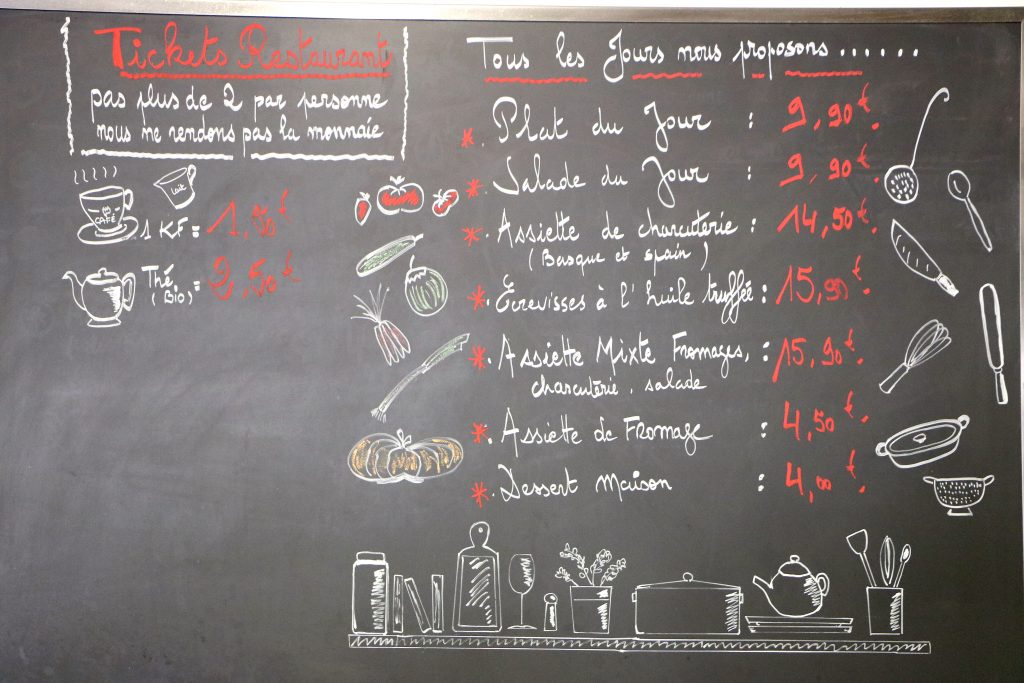 Tickets Restaurant
pas plus de 2 par personne
nous ne rendons pas la monnaie
CAFÉ
lait
1 KF =
Thé = 2,50 €
(Bio)
Tous les Jours nous proposons ......
*. Plat du Jour : 9,90 €.
*. Salade du Jour : 9,90 €.
*. Assiette de charcuterie : 14,50 €.
(Basque et spain)
*. Ecrevisses à l'huile truffée : 15,90 €.
*. Assiette Mixte Fromages, : 15,90 €.
charcuterie, salade
*. Assiette de Fromage : 4,50 €.
*. Dessert Maison : 4,00 €.